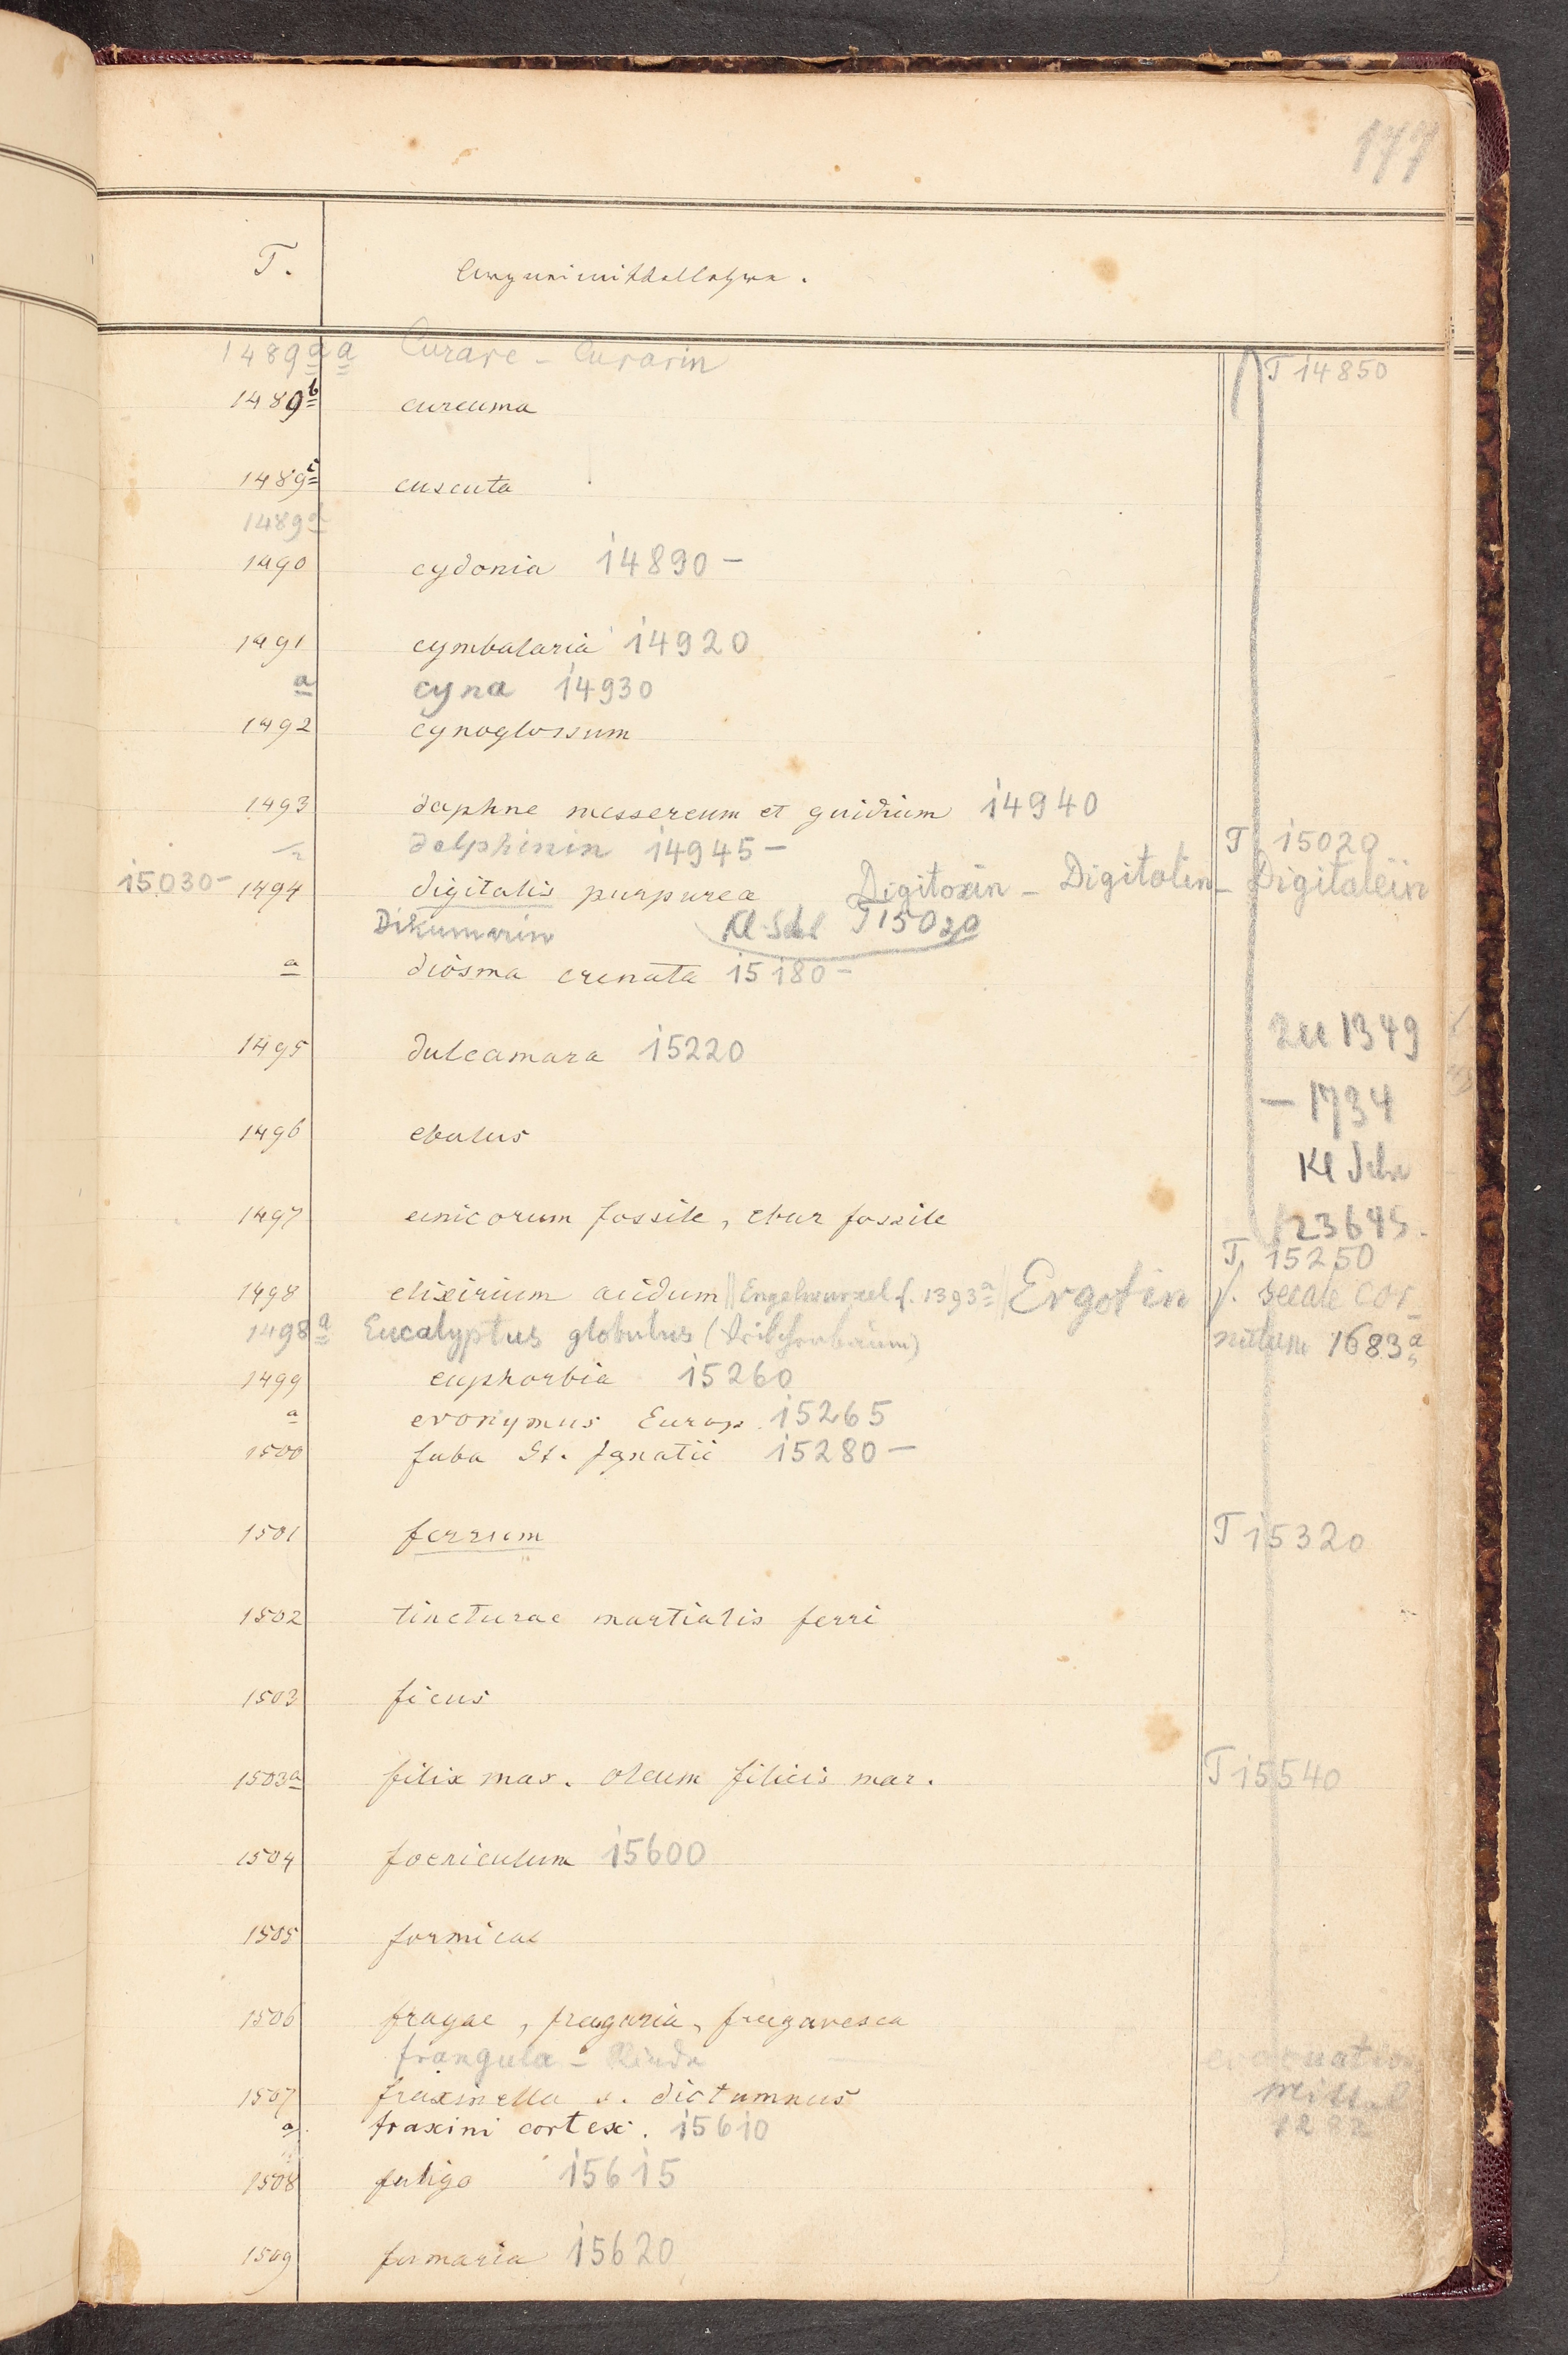 177
T. Arzneimittellehre.
1489a a Curare - Curarin T 14850
1489b curcuma
1489c cuscuta
1489d
1490 cydonia 14890 -
1491 cymbalaria 14920
a cyna 14930
1492 cynoglossum
1493 daphne messereum et gnidium 14940
delphinin 14945 - T 15020
15030- 1494 digitalis purpurea Digitoxin - Digitalin - Digitaleïn
Dikumarin Kl. Schr T 15020
a diosma crenata 15180 -
zu 1349
1495 dulcamara 15220
- 1734
1496 ebulus
Kl Schr
1497 einicorum fossile, ebur fossile
123645.
T. 15250
1498 elixirium acidum || Engelwurzel f. 1393a || Ergotin f. secale cor-
1498a Eucalyptus globulus ( nutum 1683a
1499 euphorbia 15260
a evonymus Europ. 15265
1500 faba St. Ignatii 15280 -
1501 ferrum T 15320
1502 tincturae martialis ferri
1503 ficus
1503a filix mas. oleum filicis mar. T 15540
1504 foeniculum 15600
1505 formicae
1506 fragae, fragaria, fragavesca
frangula - Rinde evacuation
1507 fraxinella s. dictamnus mittel
a fraxini cortex. 15610 1282
1508 fuligo 15615
1509 fumaria 15620